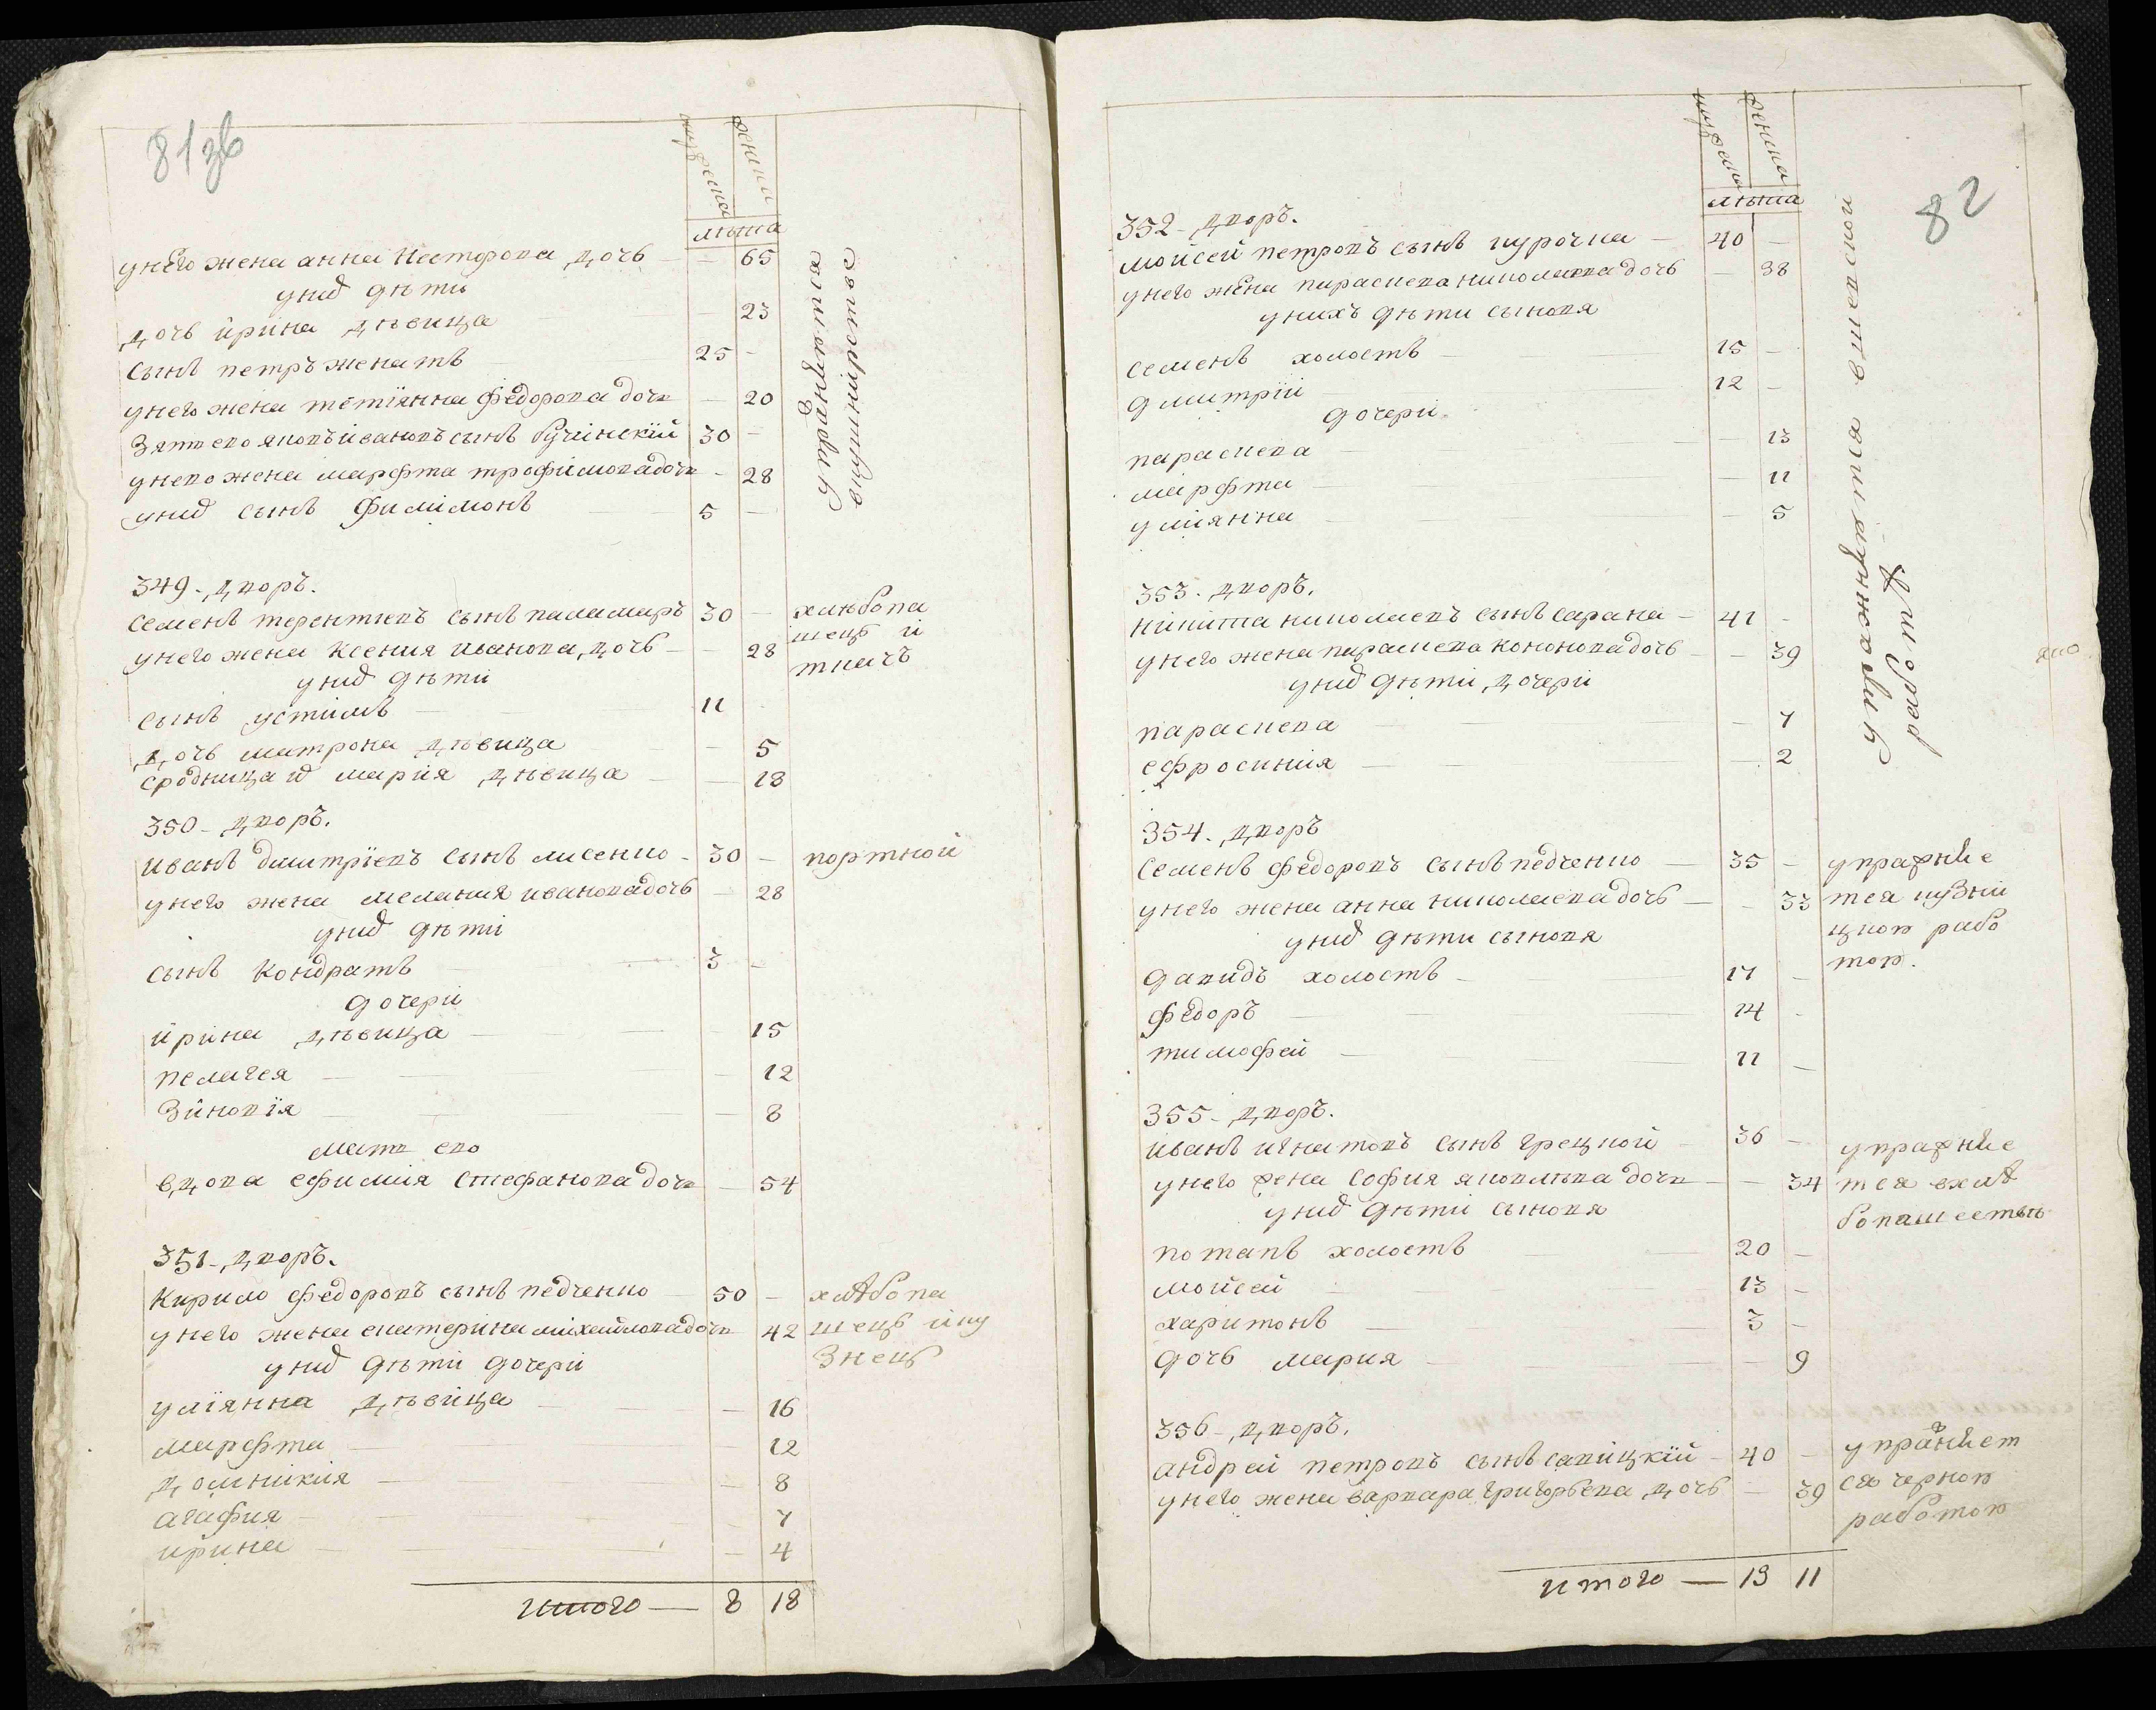 81зв
мужеска
женска
лѣта
унего жена анна Нестерова дочь — 65
уних дѣти
дочь ирина дѣвица 23
сынъ петръ женатъ 25 -
унего жена тетіянна федорова дочь — 20
Зять его яковъ ивановъ сынъ 30 —
унего жена марфта трофимова дочь - 28
уних сынъ Филимонъ 5 —
упражняются
вкупничестве
349. дворъ.
Семенъ терентіевъ сынъ паламаръ 30 — хлѣбопа
унего жена Ксения иванова дочь — 28 шецъ и
уних дѣти ткачъ
сынъ устимъ — 11
дочь матрона дѣвица — 5
сродница их мария дѣвица — 18
350 - дворъ.
Иванъ дмитріевъ сынъ лисенко - 30 — портной
унего жена мелания иванова дочь — 28
уних дѣти
сынъ Кондратъ 3 -
дочери
ирина дѣвица — 15
пелагея — 12
Зиновія — 8
мать его
вдова ефимия Стефанова дочь — 54
351 - дворъ.
Кирило федоровъ сынъ педченко 50 — хлѣбопа
унего жена екатерина михайлова дочь 42 шецъ и ку
уних дѣти дочери знецъ
уліянна дѣвица — 16
марфта — 12
домникия — 8
агафия — 7
ирина — 4
Итого — 8 18
82
мужеска
женска
лѣта
352 - дворъ.
мойсей петровъ сынъ курочка — 40 —
унего жена параскева николаева дочь — 38
унихъ дѣти сыновя
семенъ холостъ — 15 —
дмитрій 12 -
дочери
параскева — 13
марфта — 11
уліянна — 5
упражняются встепной
работѣ
353. дворъ.
никита николаевъ сынъ сарана — 41 -
унего жена параскева кононова дочь — 39
уних дѣти дочери
параскева — 7
ефросиния — 2
354. дворъ
Семенъ федоровъ сынъ педченко — 35 — упражняе
унего жена анна николаева дочь — 33 тся кузни
уних дѣти сыновя цкою рабо
давидъ холостъ — 17 — тою.
федоръ — 14 -
тимофей — 11 —
355 - дворъ.
иванъ игнатовъ сынъ грецкой — 36 — упражняе
унего жена София яковлева дочь — 34 тся вхлѣ
уних дѣти сыновя бопашествѣ
потапъ холостъ 20 —
мойсей 13 —
харитонъ — 3 —
дочь мария — 9
356 - дворъ.
андрей петровъ сынъ савицкій — 40 — упражняет
унего жена варвара григорьева дочь — 39 ся черною
работою
итого — 13 11